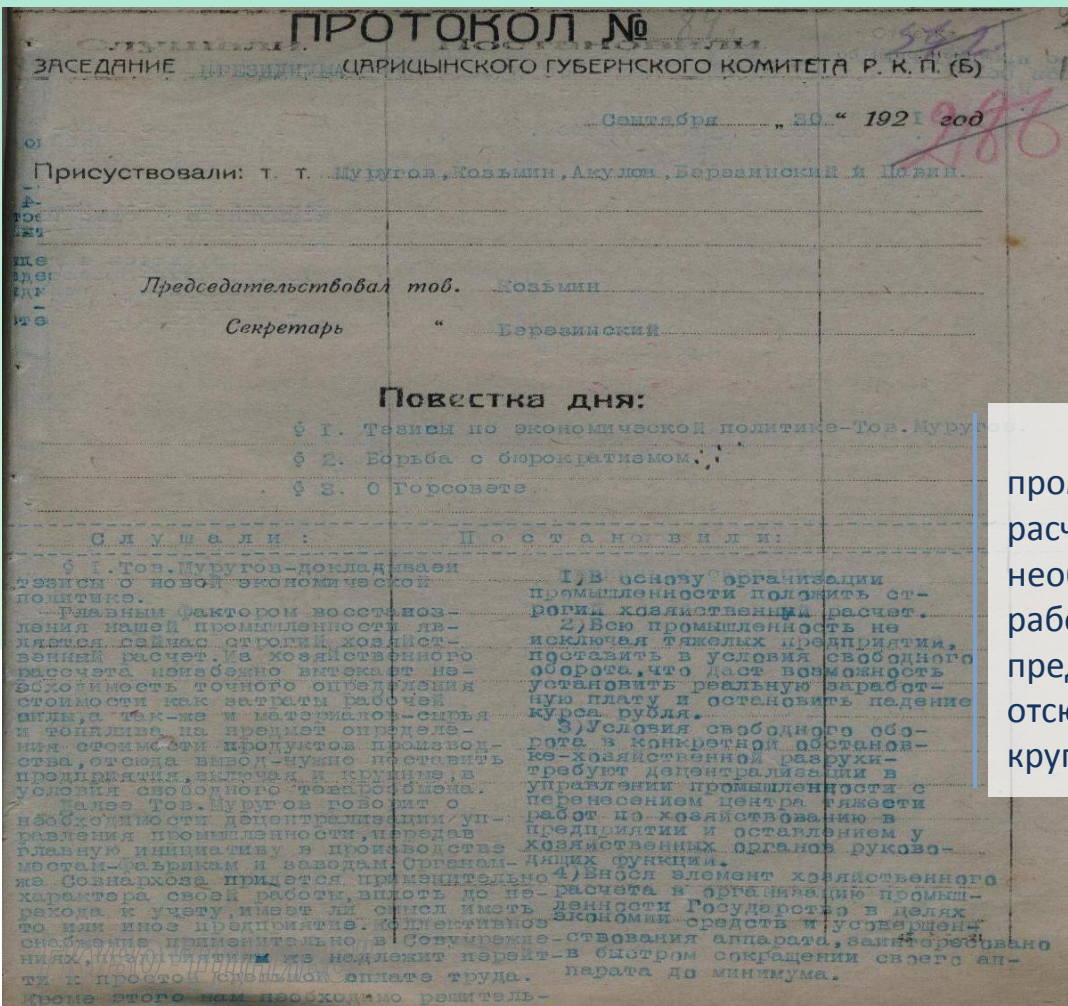 ПРОТОКОЛ №
ЗАСЕДАНИЕ ПРЕЗИДИУМА ЦАРИЦЫНСКОГО ГУБЕРНСКОГО КОМИТЕТА Р. К. П. (Б)
Сентября „ 30 “ 1921 год
286
Присуствовали: т. т. Муругов, Козьмин, Акулов, Березинский и Левин.
Председательствовал тов. Козьмин
Секретарь “ Березинский
Повестка дня:
§ I. Тезисы по экономической политике-Тов.Муругов.
§ 2. Борьба с бюрократизмом.
§ 3. О Горсовете.
Слушали:
§ I.Тов.Муругов-докладывает
тезисы о новой экономической
политике.
Главным фактором восстанов-
ления нашей промышленности яв-
ляется сейчас строгий хозяйст-
венный расчет.Из хозяйственного
рассчета неизбежно вытекает не-
обходимость точного определения
стоимости как затраты рабочей
силы,а так-же и материалов-сырья
и топлива на предмет определе-
ния стоимости продуктов производ-
ства,отсюда вывод-нужно поставить
предприятия,включая и крупные,в
условия свободного товарообмена.
Далее Тов.Муругов говорит о
необходимости децентрализации уп-
равления промышленности,передав
главную инициативу в производстве
местам-фабрикам и заводам.Органам-
же Совнархоза придется применительно
характера своей работы,вплоть до пе-
рехода к учету,имеет ли смысл иметь
то или иное предприятие.Коллективное
снабжение применительно в Совучрежде-
ниях,предприятиям же надлежит перейт-
ти к простой сдельной оплате труда.
Кроме этого нам необходимо решитель-
Постановили:
I)В основу организации
промышленности положить ст-
рогий хозяйственный расчет.
2)Всю промышленность не
исключая тяжелых предприятий,
поставить в условия свободного
оборота,что даст возможность
установить реальную заработ-
ную плату и остановить падение
курса рубля.
3)Условия свободного обо-
рота в конкретной обстанов-
ке-хозяйственной разрухи-
требуют децентрализации в
управлении промышленности с
перенесением центра тяжести
работ по хозяйствованию в
предприятии и оставлением у
хозяйственных органов руково-
дящих функций.
4)Внося элемент хозяйственного
расчета в организацию промыш-
ленности Государство в целях
экономии средств и усовершен-
ствования аппарата,заинтересовано
в быстром сокращении своего ап-
парата до минимума.
про
рас
необ
рабо
пред
отс
круп